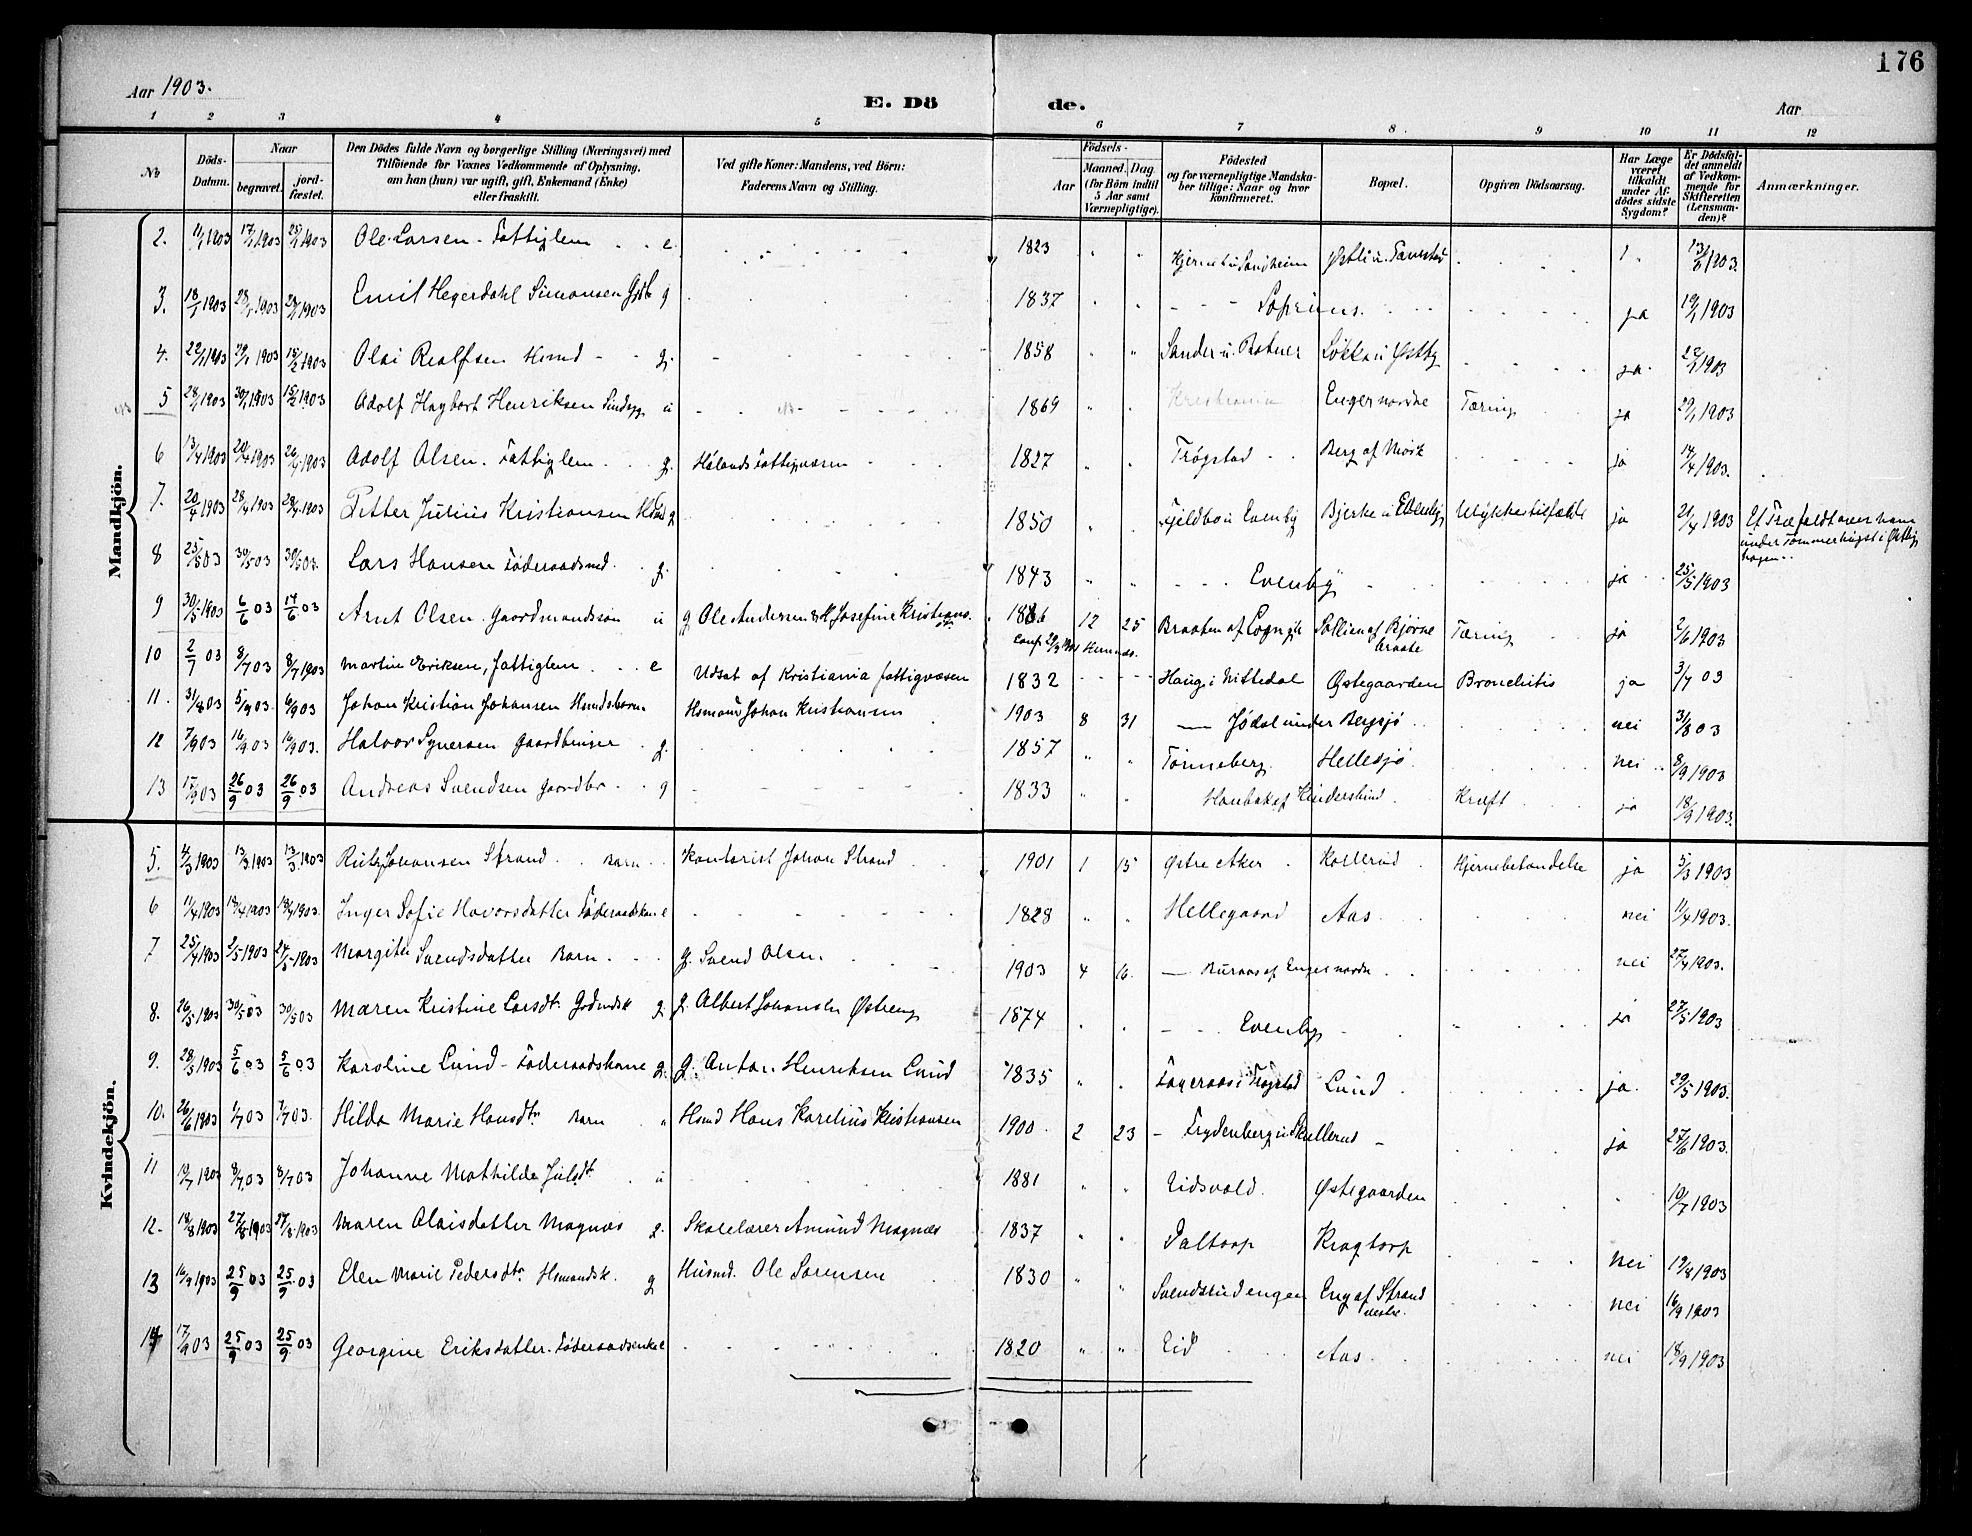 176
Aar 1903.
E. Dö de.
Aar
1 2 3 4 5 6 7 8. 9 10 11 12
No
Döds-Datum.
Naar
begravet.
jord-fæstet.
Den Dödes fulde Navn og borgerlige Stilling (Næringsvei) med
Tilföiende for Voxnes Vedkommende af Oplysning,
om han (hun) var ugift, gift, Enkemand (Enke)
eller fraskilt.
Ved gifte Koner: Mandens, ved Börn:
Faderens Navn og Stilling.
Födsels-
Aar
Maaned. Dag
(for Börn indtil
5 Aar samt
Værnepligtige).
Födested
og for værnepligtige Mandska-
ber tillige: Naar og hvor
konfirmeret.
Bopæl.
Opgiven Dödsaarsag.
Har Læge
været
tilkaldt
under Af-
dödes sidste
Sygdom?
Er Dödsfal-
det anmeldt
af Vedkom-
mende for
Skifteretten
(Lensman-
den)?
Anmærkninger.
Mandkjön.
2. 11/1 1903 17/1 1903 25/1 1903 Ole Larsen. Fattiglem e. 1823 " " 13/1 1903.
3. 18/1 1903 28/1 1903 28/1 1903 Emil Hegerdahl Simonsen g 1837 " " ja 19/1 1903
4. 22/1 1903 29/1 1903 15/2 1903 Olai Realfsen Hsmd g. 1858 " " Løkka u Østby ja 22/1 1903
5 24/1 1903 30/1 1903 15/2 1903 Adolf Hagbart Henriksen u 1869 " " Kristiania Enger nordre Tæring ja 29/1 1903
6 13/4 1903 20/4 1903 26/4 1903 Adolf Olsen. Fattiglem g. Hølands Fattigvæsen 1827 " " Trøgstad Berg af Mørk ja 14/4 1903.
7. 20/4 1903 28/4 1903 28/4 1903 Petter Julius Kristiansen g 1850 " Fjeldbo u Evenby Bjerke u Evenby Ulykkestilfælde ja 21/4 1903 Et Træ faldt over ham
under Tømmerhugst i Østby
hagen
8 25/5 03 30/5 03 30/5 03. Lars Hansen Föderaadsmd g. 1843 " " Evenby ja 25/5 1903
9 30/5 1903 6/6 03 14/6 03 Arnt Olsen. Gaardmandssøn u g Ole Andersen & M Josefine Kristians. 1886 12 25 Braaten af Sollien af Bjørne
braate Tæring ja 2/6 1903
10 2/7 03 8/7 03 8/7 1903 Martin Eriksen, fattiglem e Udsat af Kristiania fattigvæsen 1832 Haug i Nittedal Østegaarden Bronchitis ja 3/7 03
11. 31/8 03 5/9 03. 6/9 03 Johan Kristian Johansen Hsmdsbarn Hsmand Johan Kristiansen 1903 8 31 Jødal under Bergsjø nei 3/8 03
12 7/9 03 16/9 03 16/9 03. Halvor Syversen Gaardbruger g. 1857 " " Tønneberg Hellesjø nei 8/9 1903
13 17/9 03 26/9 03 26/9 03 Andreas Svendsen Gaardbr g 1833 " " Kræft ja 18/9 1903.
Kvindekjön.
5. 4/3 1903 13/3 1903 13/3 1903 Ruth Johansen Strand Barn Kontorist Johan Strand 1901 1 15 Østre Aker Kollerud Hjernebetændelse ja 5/3 1903
6 11/4 1903 18/4 1903 18/4 1903. Inger Sofie Havorsdatter Föderaadskone 1828 " " Hellegaard Aas nei 11/4 1903.
7 25/4 1903 2/5 1903 24/5 1903 Margit Svendsdatter Barn g. Svend Olsen. 1903 4 16 Buraas af Enger nordre nei 27/4 1903.
8. 26/5 1903 30/5 03 30/5 03 Maren Kristine Larsdt. Grdmdsk g. g. Albert Johansen Østreng 1874 " " Evenby ja 27/5 1903
9. 28/5 1903 5/6 03 5/6 03 Karoline Lund - Föderaadskone g. g. Anton Henriksen Lund 1835 " " i Trøgstad Lund ja. 29/5 1903.
10. 26/6 1903 1/7 03 7/7 03. Hilda Marie Hansdtr Barn " Hsmd Hans Karelius Kristiansen 1900 2 23 Frydenberg u Skullerud ja 27/6 1903.
11 19/7 1903 8/7 03 8/7 03 Johanne Mathilde Julsdt. u 1881 " " Eidsvold. Østegaarden 10/7 1903
12. 18/8 1903 27/8 1903 27/8 1903 Maren Olaisdatter Magnæs g. Skolelærer Amund Magnæs 1837 " " Daltorp Kragtorp nei 19/8 1903
13 16/9 1903 25/9 03 25/9 03 Elen Marie Pedersdtr Hsmandsk. g Husmd. Ole Sørensen 1830 " " Svendsrudengen Eng af Strand
vestre. nei 16/9 1903
14 17/9 03 25/9 03 25/9 03 Georgine Eriksdatter. Föderaadsenke 1820 " " Eid Aas nei 18/9 1903